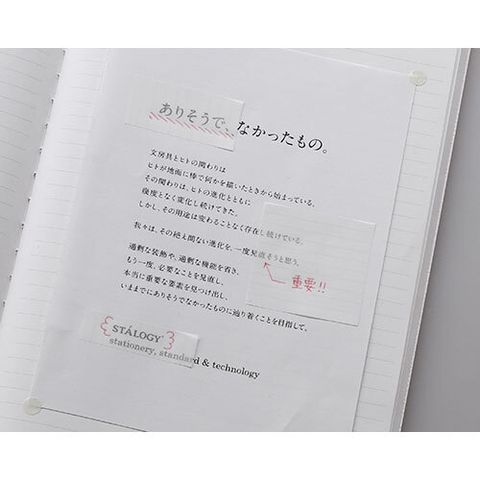 ありそうで、なかったもの。
文房具とヒトの関わりは
ヒトが地面に棒で何かを描いたときから始まっている。
その関わりは、ヒトの進化とともに
幾度となく変化し続けてきた。
しかし、その用途は変わることなく存在し続けている。
我々は、その絶え間ない進化を、一度見直そうと思う。
過剰な装飾や、過剰な機能を省き、
もう一度、必要なことを見直し、
本当に重要な要素を見つけ出し、
いままでにありそうでなかったものに辿り着くことを目指して。
重要!!
{STÁLOGY}
stationery, standard & technology